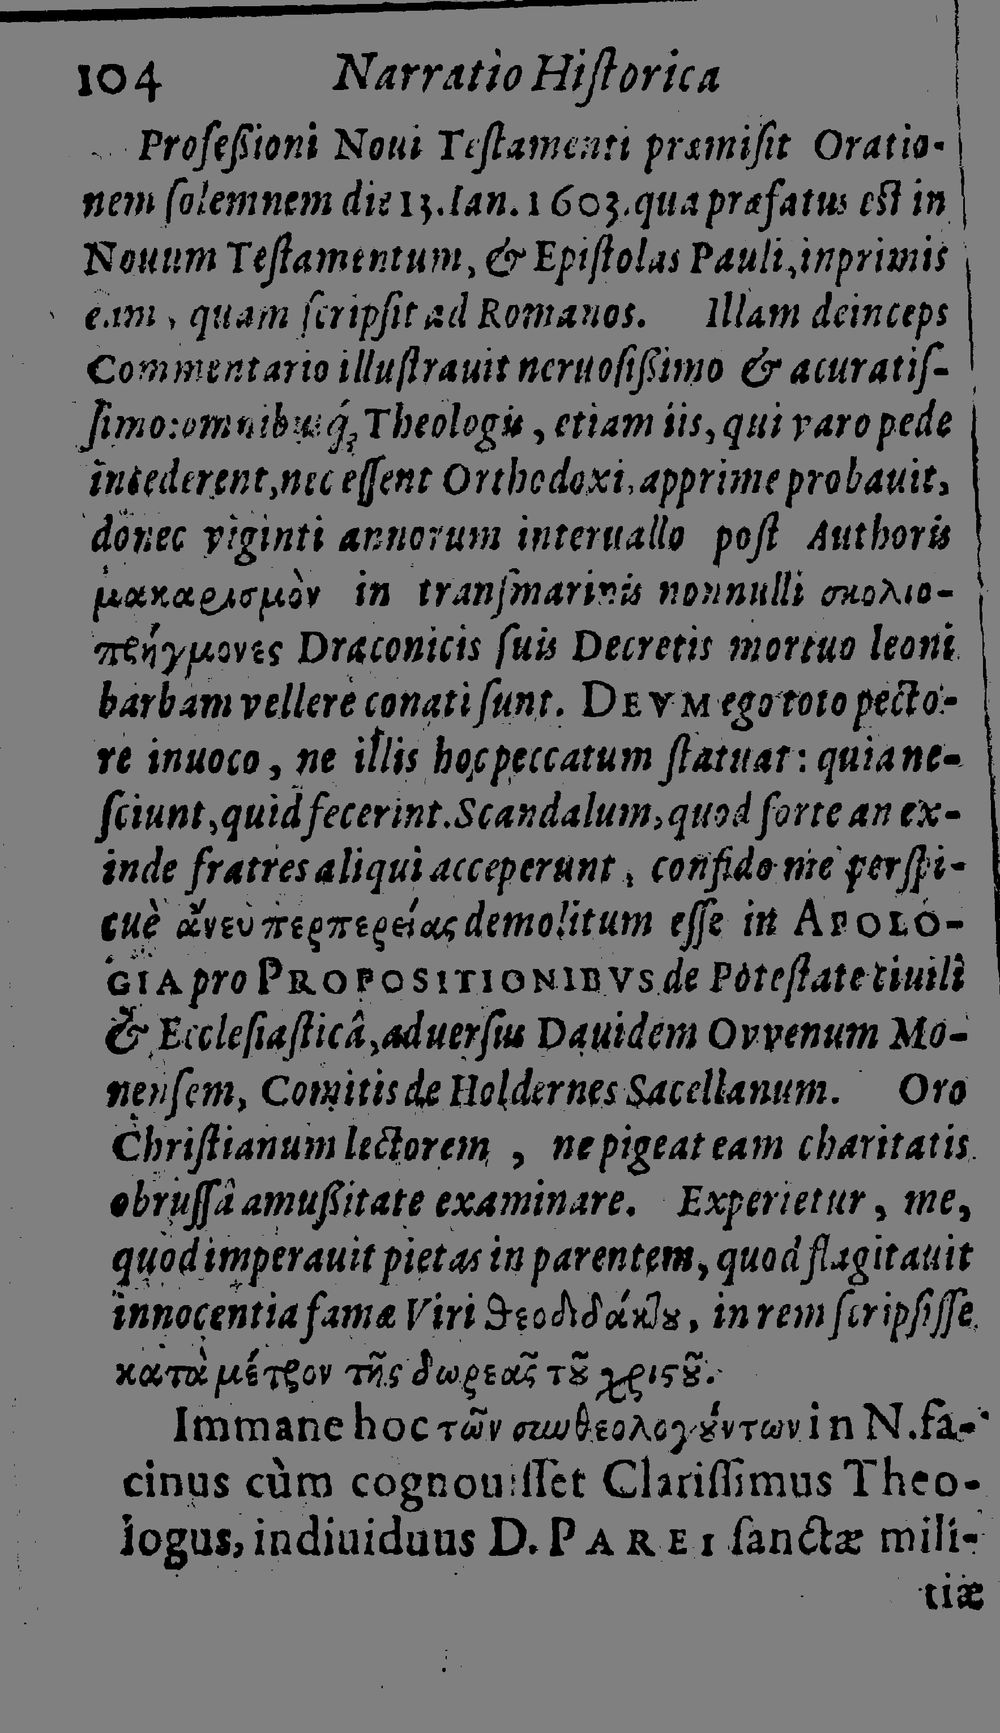 104 Narratio Hiſtorica
Profeßioni Noui Teſtamenti præmiſit Oratio-
nem ſolemnem die 13. Ian. 1603. qua præfatus est in
Nouum Teſtamentum, & Epiſtolas Pauli, inprimis
eam, quam ſcripſit ad Romanos. Illam deinceps
Commentario illuſtrauit neruoſißimo & acuratiſ-
ſimo: omnibuſq́; Theologis, etiam iis, qui varo pede
incederent, nec eſſent Orthodoxi, apprime probauit,
donec viginti annorum interuallo poſt Authoris
μακαρισμὸν in tranſmarinis nonnulli σκολιο-
πρήγμονες Draconicis ſuis Decretis mortuo leoni
barbam vellere conati ſunt. DEVM ego toto pecto-
re inuoco, ne illis hoc peccatum ſtatuat: quia ne-
ſciunt, quid fecerint. Scandalum, quod forte an ex-
inde fratres aliqui acceperunt, confido me perſpi-
cuè ἄνευ περπερείας demolitum eſſe in APOLO-
GIA pro PROPOSITIONIBVS de Poteſtate ciuili
& Eccleſiaſticâ, aduerſus Dauidem Ovvenum Mo-
nenſem, Comitis de Holdernes Sacellanum. Oro
Chriſtianum lectorem, ne pigeat eam charitatis
obruſſâ amußitate examinare. Experietur, me,
quod imperauit pietas in parentem, quod flagitauit
innocentia famæ Viri θεοδιδάκτȣ, in rem ſcripſiſſe
κατὰ μέτρον τῆς δωρεᾶς τȣ͂ χριςȣ͂.
Immane hoc τῶν συνθεολογȣ́ντων in N. fa-
cinus cùm cognouiſſet Clariſſimus Theo-
logus, indiuiduus D. PAREI ſanctæ mili-
tiæ